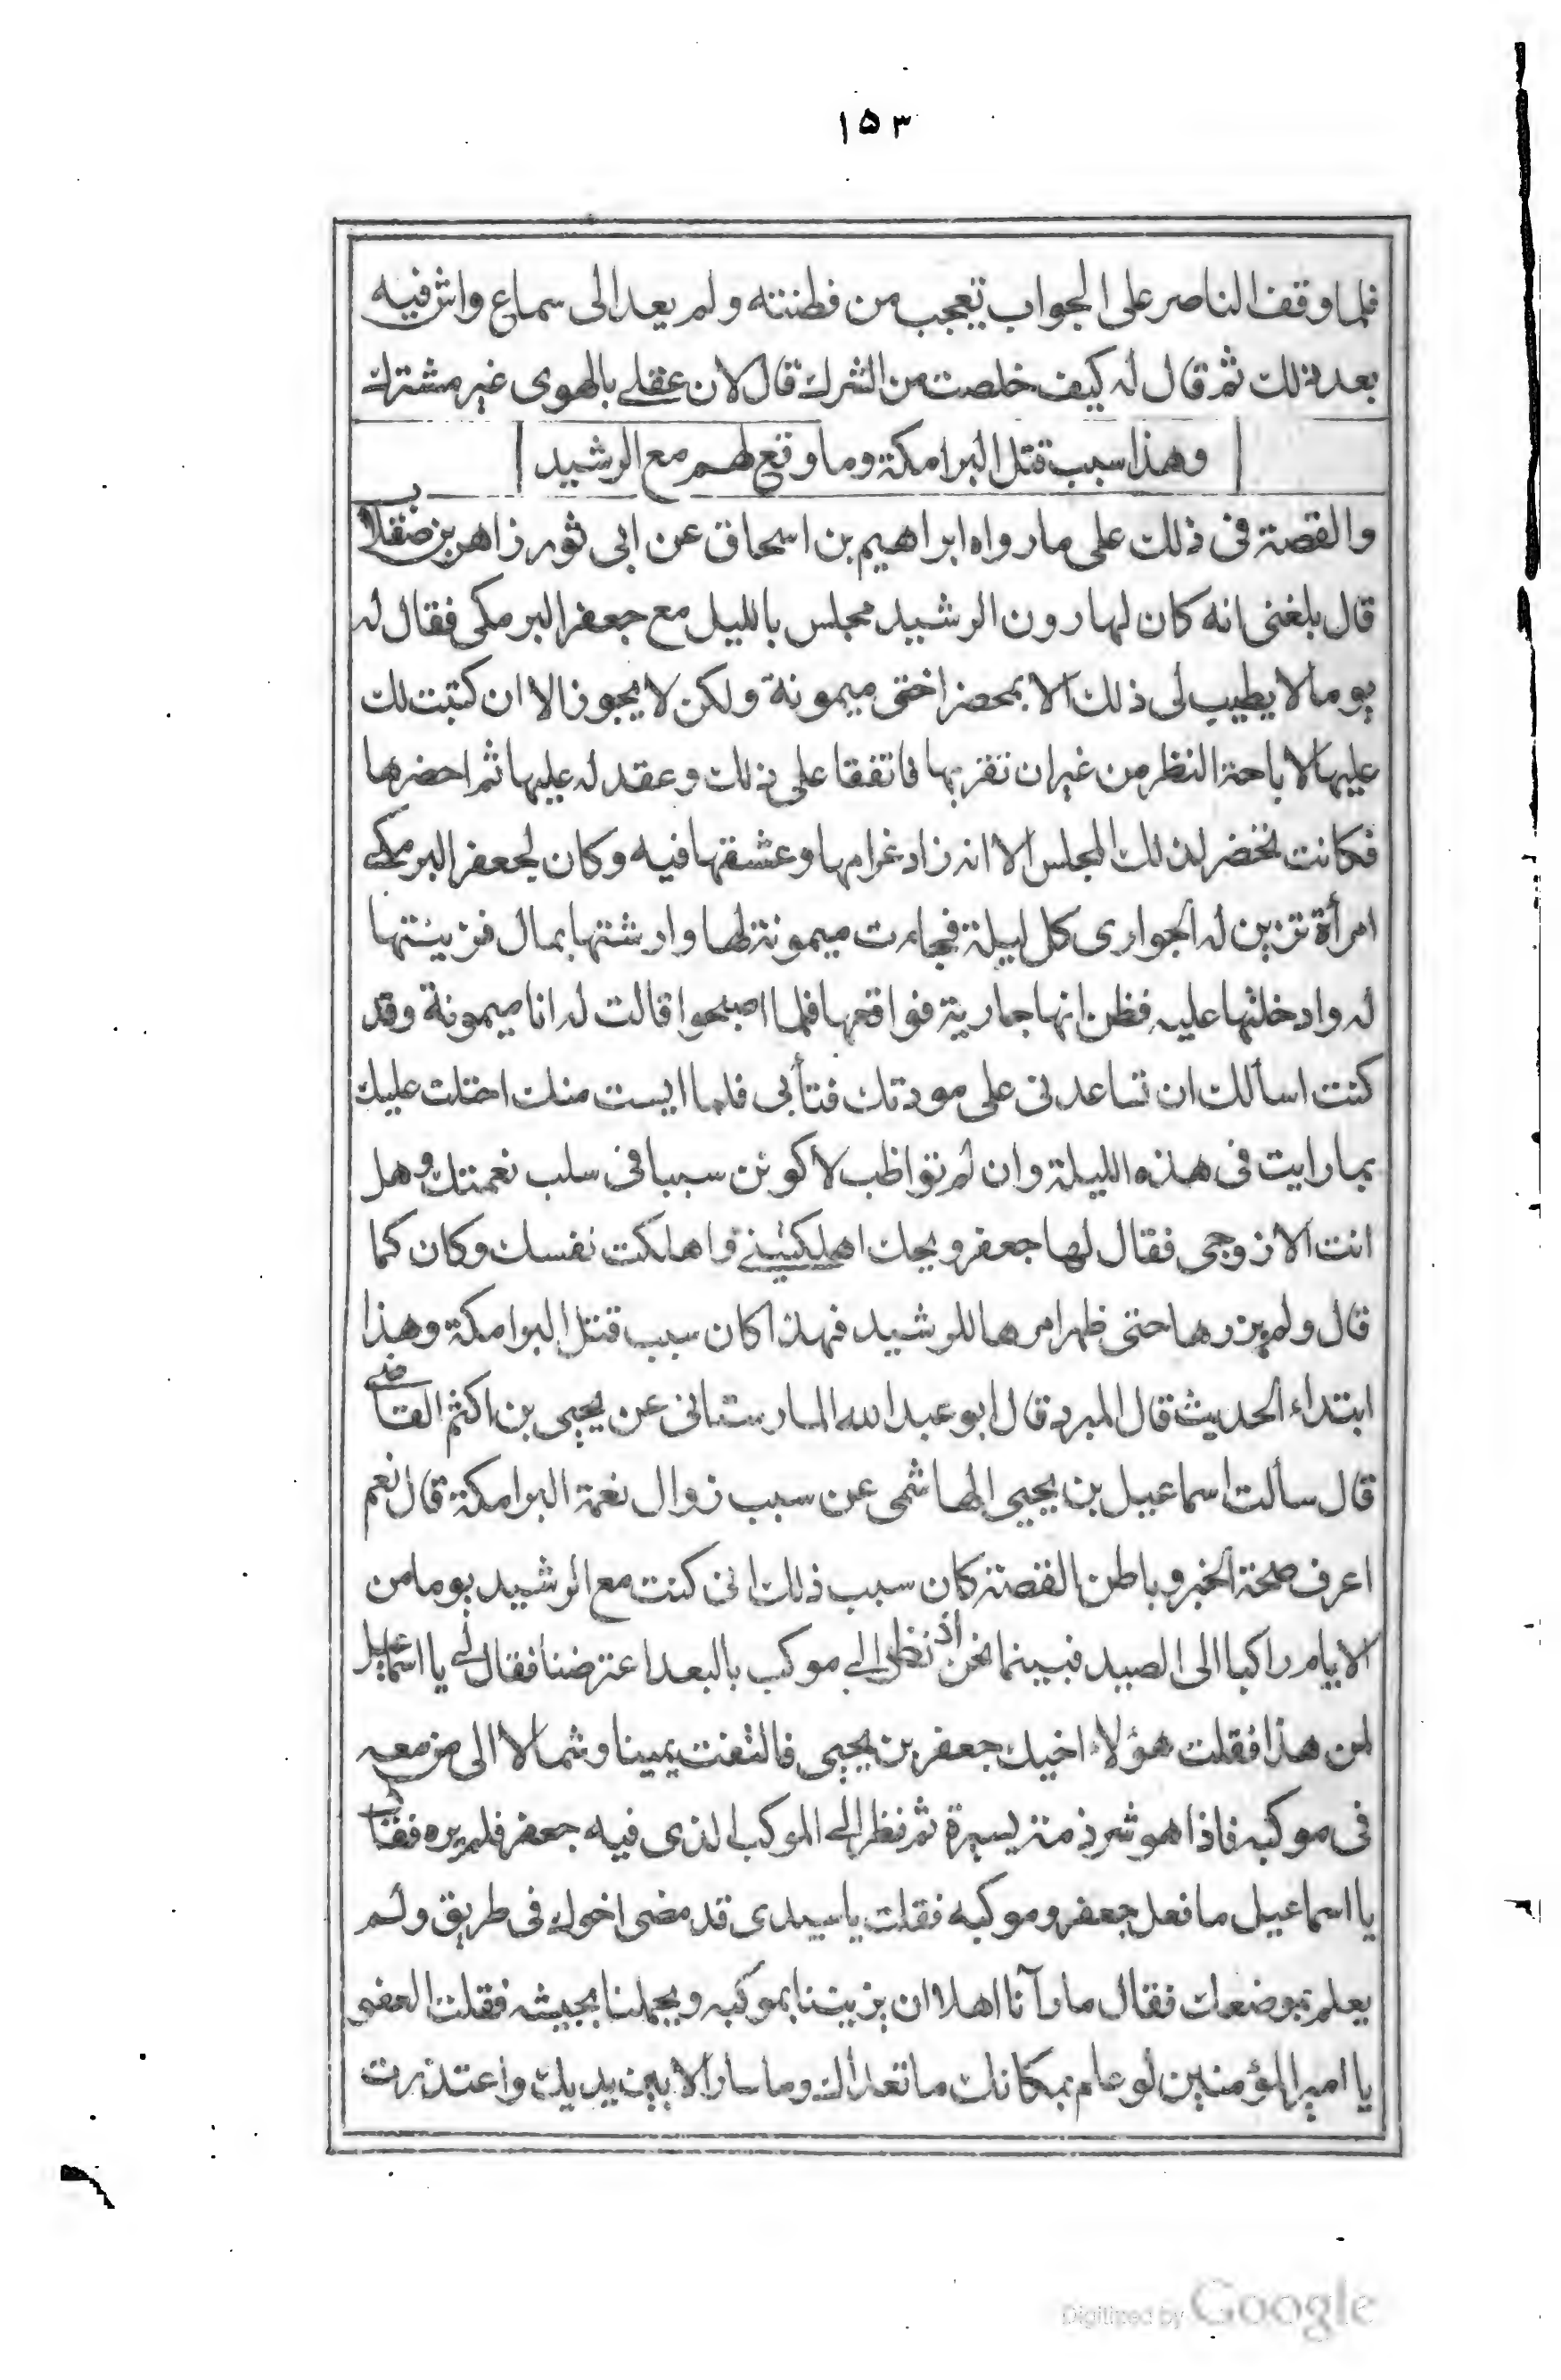 ١٥٣
فلما وقف الناصر على الجواب تعجب من فطنته ولم يعد الى سماع واش فيه
بعد ذلك ثم قال له كيف خلصت من الشرك قال لان عقلى بالهوى غير مشترك
وهذا سبب قتل البرامكة وما وقع لهم مع الرشيد
والقصة فى ذلك على ما رواه ابراهيم بن اسحاق عن ابى ثور زاهر بن صقلاب
قال بلغنى انه كان لهارون الرشيد مجلس بالليل مع جعفر البرمكى فقال له
يوما لا يطيب لى ذلك الا بمحضر اختى ميمونة ولكن لا يجوز الا ان كتبت لك
عليها لاباحة النظر من غير ان تقربها فاتفقا على ذلك وعقد له عليها ثم احضرها
فكانت تحضر لذلك المجلس الا انه زاد غرامها وعشقها فيه وكان لجعفر البرمكى
امرأة تزين له الجوارى كل ليلة فجاءت ميمونة لها وارشتها بمال فزينتها
له وادخلتها عليه فظن انها جارية فواقعها فلما اصبحوا قالت له انا ميمونة وقد
كنت اسألك ان تساعدنى على مودتك فتأبى فلما ايست منك احتلت عليك
بما رايت فى هذه الليلة وان لم تواظب لاكونن سببا فى سلب نعمتك وهل
انت الا زوجى فقال لها جعفر ويحك اهلكتينى واهلكت نفسك وكان كما
قال ولم يزرها حتى ظهر امرها للرشيد فهذا كان سبب قتل البرامكة وهذا
ابتداء الحديث قال المبرد قال ابو عبد الله المارستانى عن يحيى بن اكثم القاضى
قال سألت اسماعيل بن يحيى الهاشمى عن سبب زوال نعمة البرامكة قال نعم
اعرف صحة الخبر وباطن القصة كان سبب ذلك انى كنت مع الرشيد يوما من
الايام راكبا الى الصيد فبينما نحن اذ نظر الى موكب بالبعد اعترضنا فقال لى يا اسماعيل
لمن هذا فقلت هؤلاء اخيك جعفر بن يحيى فالتفت يمينا وشمالا الى من معه
فى موكبه فاذا هو شرذمة يسيرة ثم نظر الى الموكب الذى فيه جعفر فلم يره فقال
يا اسماعيل ما فعل جعفر وموكبه فقلت يا سيدى قد مضى اخوك فى طريق ولم
يعلم بموضعك فقال ما رآنا اهلا ان يزيننا بموكبه ويجملنا بجيشه فقلت العفو
يا امير المؤمنين لو علم بمكانك ما تعداك وما سار الا بين يديك واعتذرت
Digitized by Google